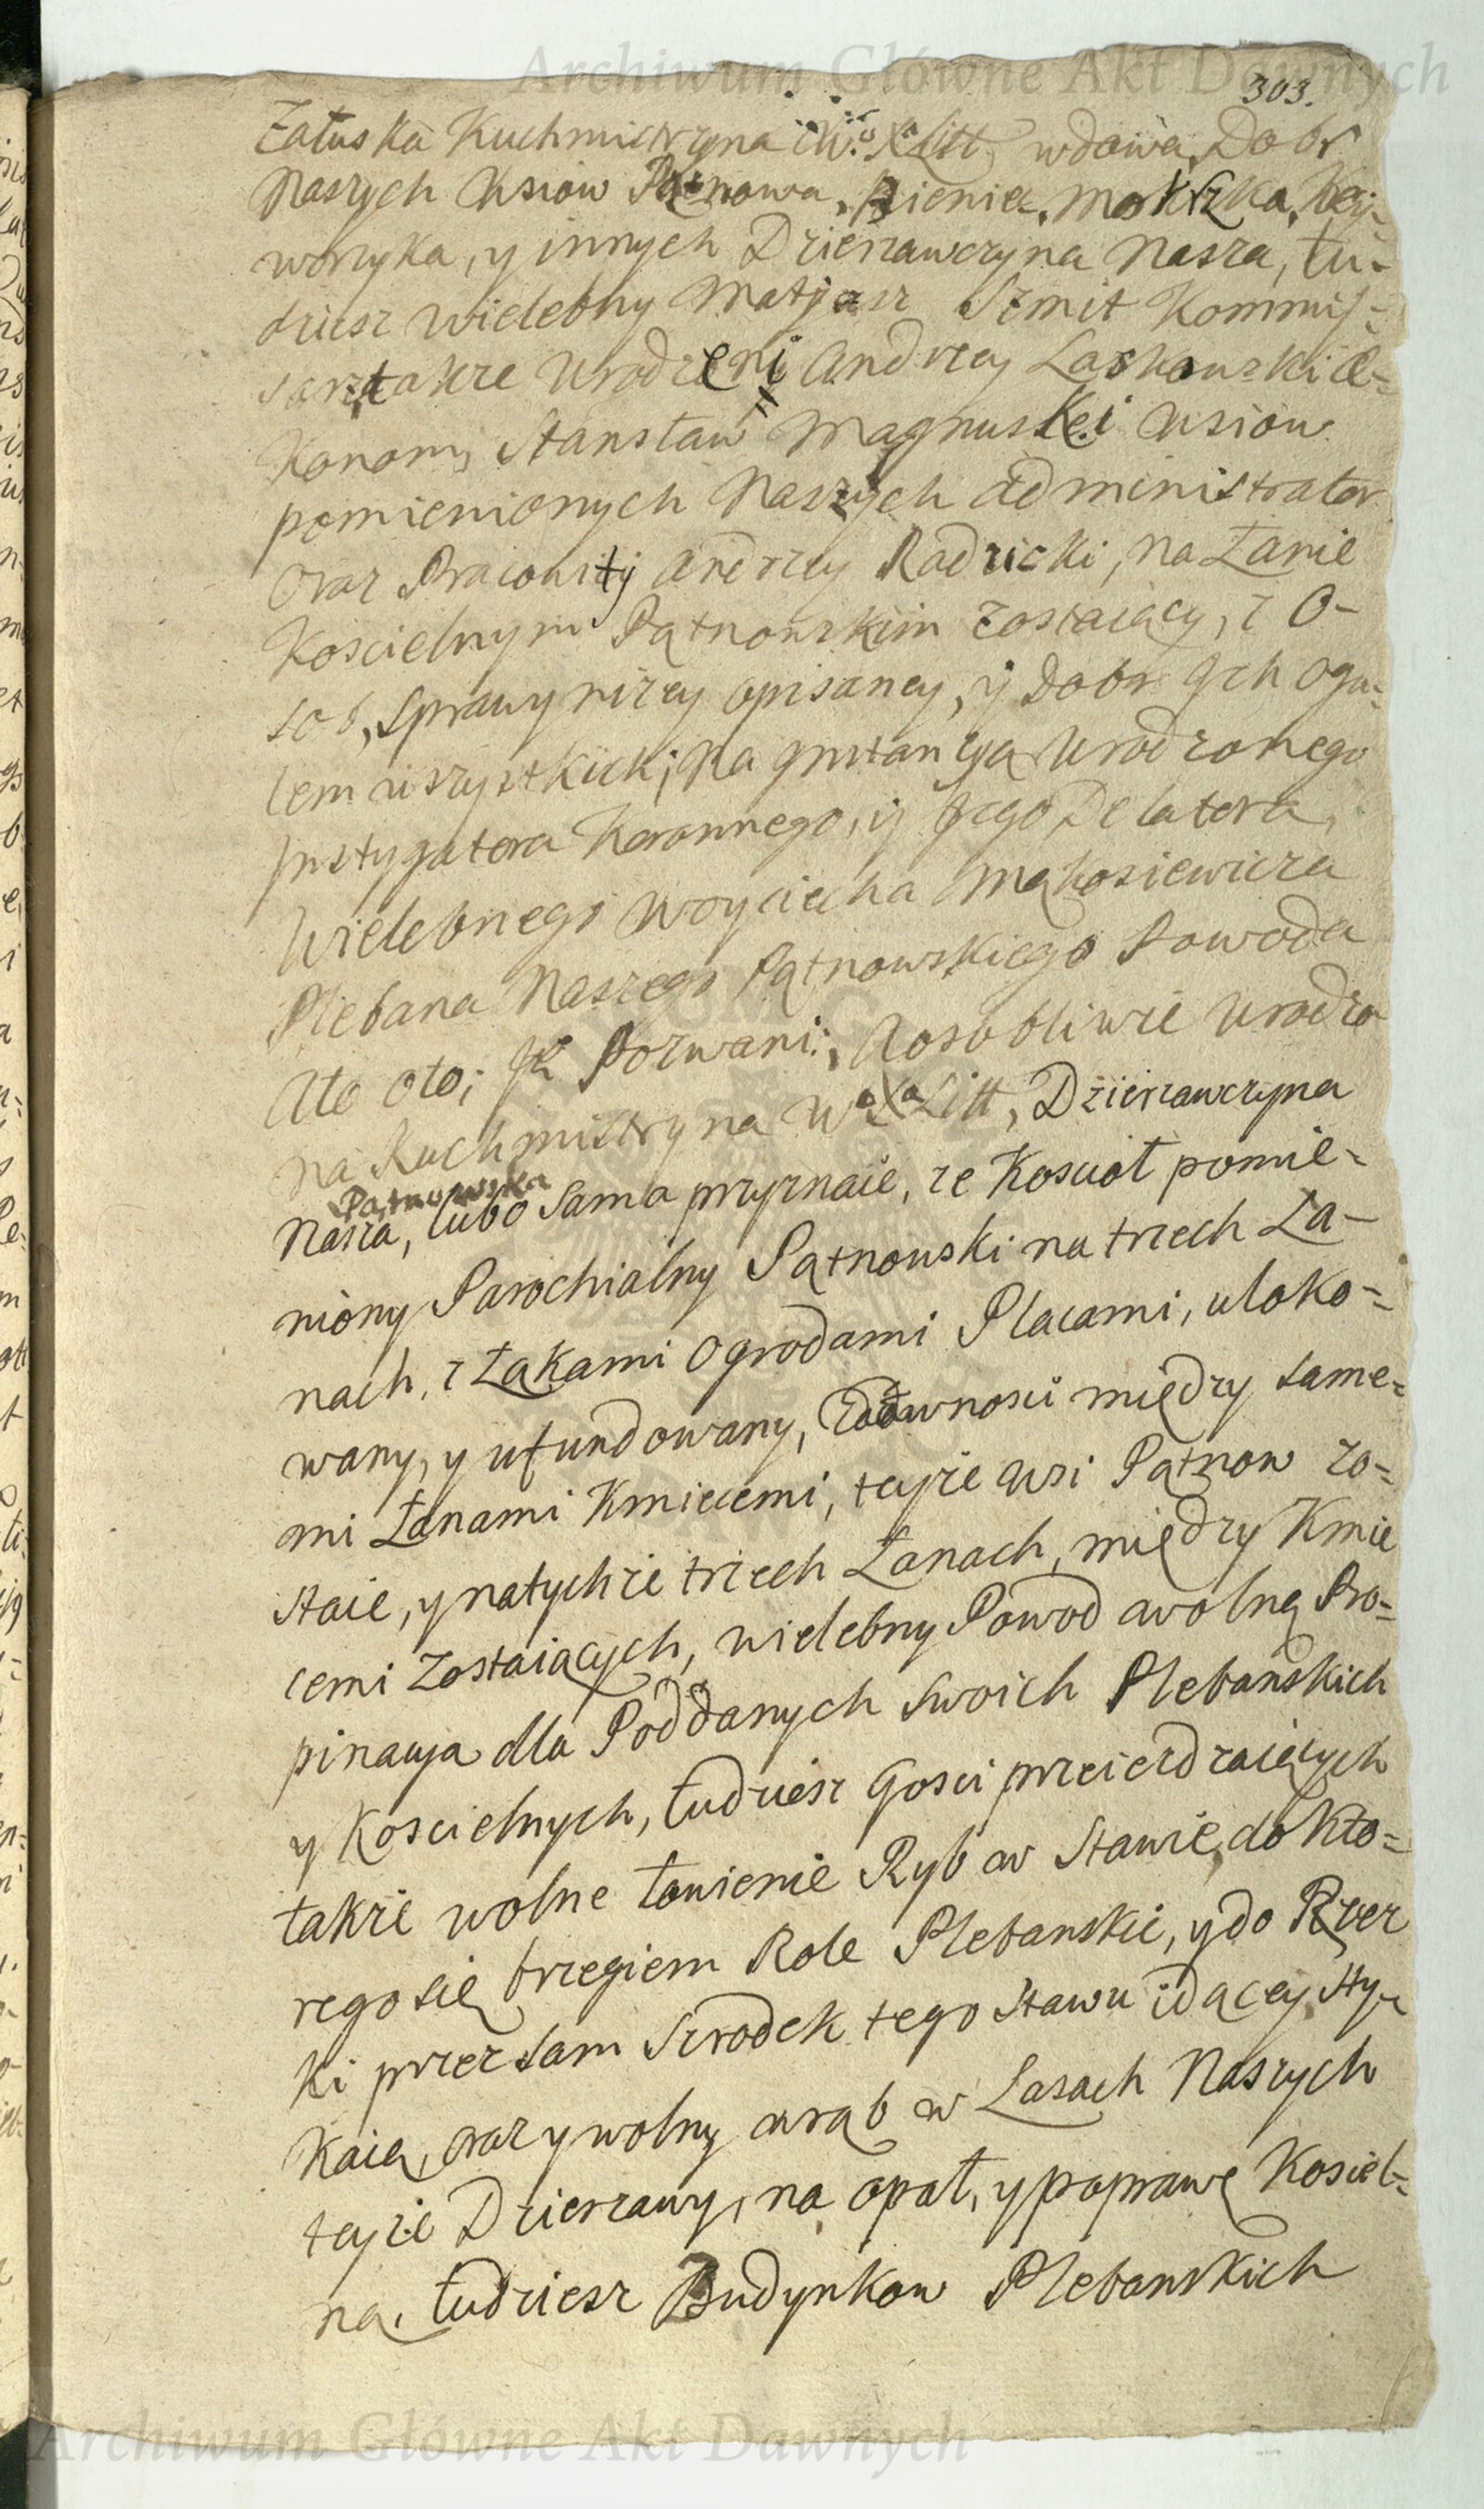 Archiwum Główne Akt Dawnych
303.
Załuska Kuchmistrzyna W. X Litt, wdowa, Dobr
Naszych Wsiow Pątnowa, Pieniek, Mokrzka, Kay=
worzyka, y innych Dzierzawczyna Nasza, tu=
dziesz Wielebny Matjasz Szmit Kommis=
sarz takze Urodzeni Andrzey Laskowski E=
konom, Stanisław Magnuski Wsiow
pomienionych Naszych Administrator
Oraz Pracowity Andrzey Radzicki, na Łanie
Koscielnym Pątnowskim zostaiący, z O-
sob, Sprawy nizey opisaney, y Dobr Jch ogu=
łem wszystkich; Na Jnstancyą Urodzonego
Jnstygatora Koronnego, y Jego Delatora,
Wielebnego Woyciecha Mąkosiewicza
Plebana Naszego Pątnowskiego Powoda
Ato oto; Jz Pozwani; Aosobliwie Urodzo
na Kuchmistrzyna W X Litt, Dzierzawczyna
Pątnowska
Nasza, lubo sama przyznaie, ze Koscioł pomie=
niony Parochialny Pątnowski na trzech Ła-
nach, z Łąkami Ogrodami Placami, uloko=
wany, y ufundowany, Zdawnosci między same=
mi Łanami Kmiecemi, teyze Wsi Pątnow zo=
staie, y natychze trzech Łanach, między Kmie
cemi Zostaiących, wielebny Powod wolną Pro=
pinacyą dla Poddanych swoich Plebanskich
y Koscielnych, tudziesz Gosci przeiezdzaiących
takze wolne łowienie Ryb w Stawie, do kto=
rego się brzegiem Role Plebanskie, y do Rzecz
ki przez sam Szrodek tego Stawu idącey, sty=
kaią, oraz y wolny wrąb w Lasach Naszych
teyze Dzierzawy, na opał, y poprawę Koscieł=
na, tudziesz Budynkow Plebanskich
Archiwum Główne Akt Dawnych